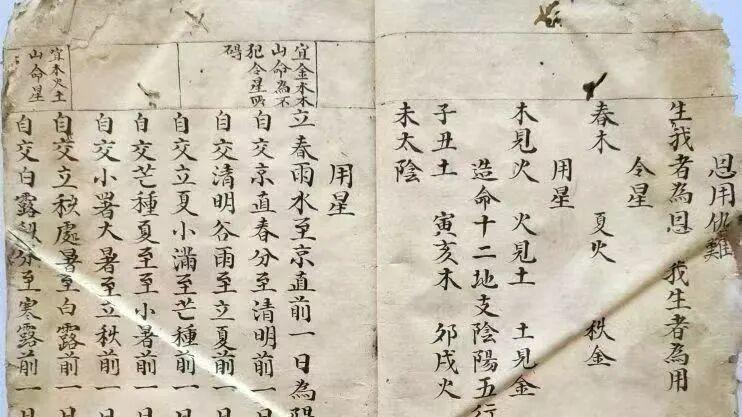 恩用仇難
生我者為恩　我生者為用
令星
春木　夏火　秋金
用星
木見火　火見土　土見金
造命十二地支陰陽五行
子丑土　寅亥木　卯戌火
未太陰
用星
宜金水木山命為不犯令星所碍
立春雨水至京直前一日為陽
自交京直春分至清明前一日
自交清明谷雨至立夏前一日
自交立夏小滿至芒種前一日
自交芒種夏至至小暑前一日
自交小暑大暑至立秋前一日
宜木火土山命星
自交立秋處暑至白露前一日
自交白露秋分至寒露前一日